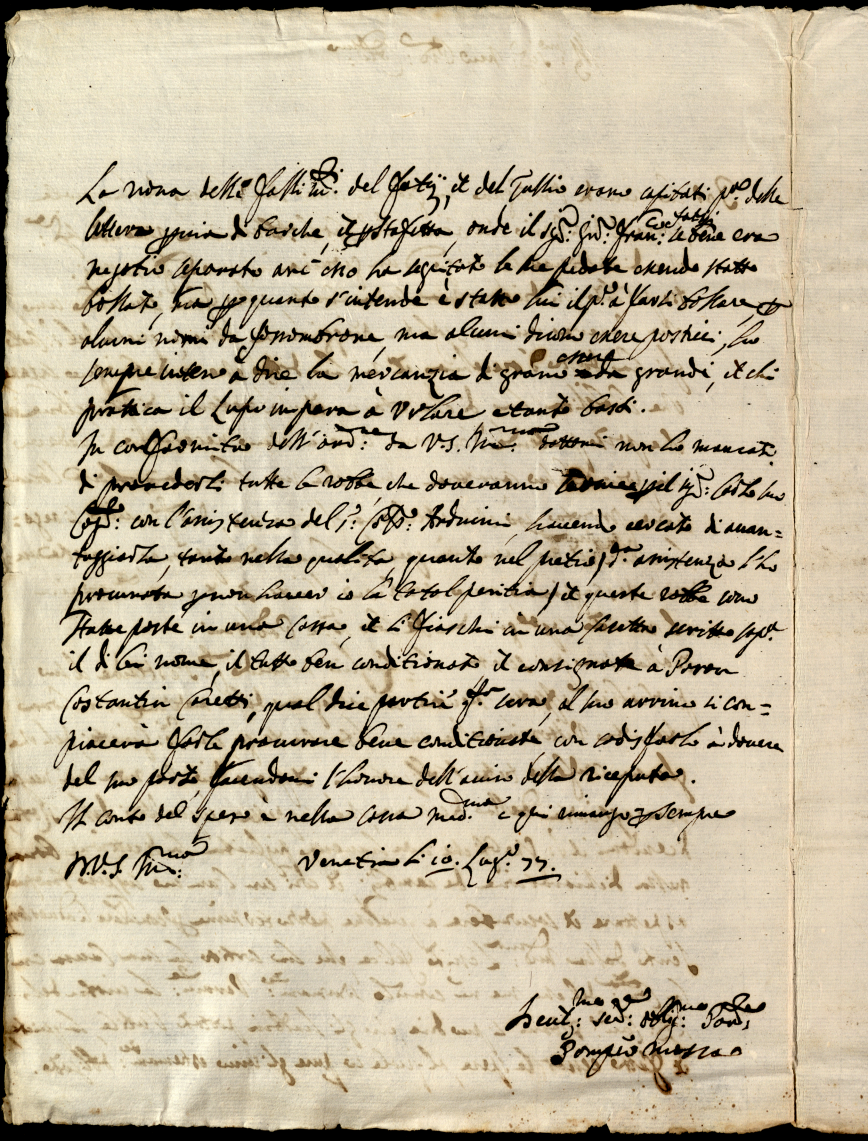 La nova delli falliti del fatij, et del Tullio erano capitati p.a delle
lettere di barche, et staffetta, onde il sig.r Gio: Fran.co se bene era
negotio ha agitato le sue pedate essendo statto
bollato, ma p quanto s'intende è statto lui il p.o à farli bollare,
alcuni nomi da Fossombrone, ma alcuni dicono essere posticci, ho
sempre inteso à dire la mercanzia di grano essere da grandi, et chi
prattica il Lupo impara à urlare e tanto basti.
In conformita dell'ord.ne da V.S. Ill.ma dattomi non ho mancato
di provederli tutte le robbe che doveranno p il sig.r Carlo suo
con l'assistenza del s.r Arduini, havendo cercato di avan=
taggiarla, tanto nella qualità, quanto nel pretio/ d.a assistenza l'ho
procurata p non havere io la total peritia/ et queste robbe sono
statte poste in una cassa, et li fiaschi in una scritto sop.a
il di lei nome, il tutto ben conditionato et consignato à Paron
Costantin Caretti, qual dice partire q.sta sera, al suo arrivo si con=
piacerà farle procurare bene conditionate, con sodisfarlo à dovere
del suo porto, facendomi l'honore dell'aviso della riceputa.
Il conto del speso è nella cassa med.ma e qui rimango p sempre
D.V.S. Ill.ma Venetia li 10. Lug.o 77.
ser.re oblig.mo
Pompeo